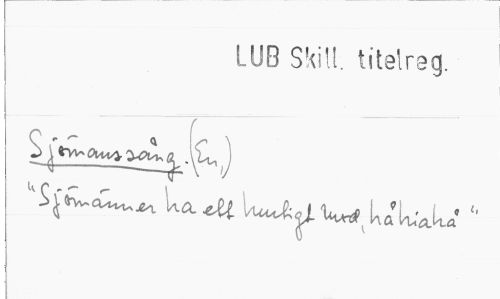 LUB Skill. titelreg.
Sjömanssång. (En,)
"Sjömänner ha ett hurtigt mod, håhiahå"